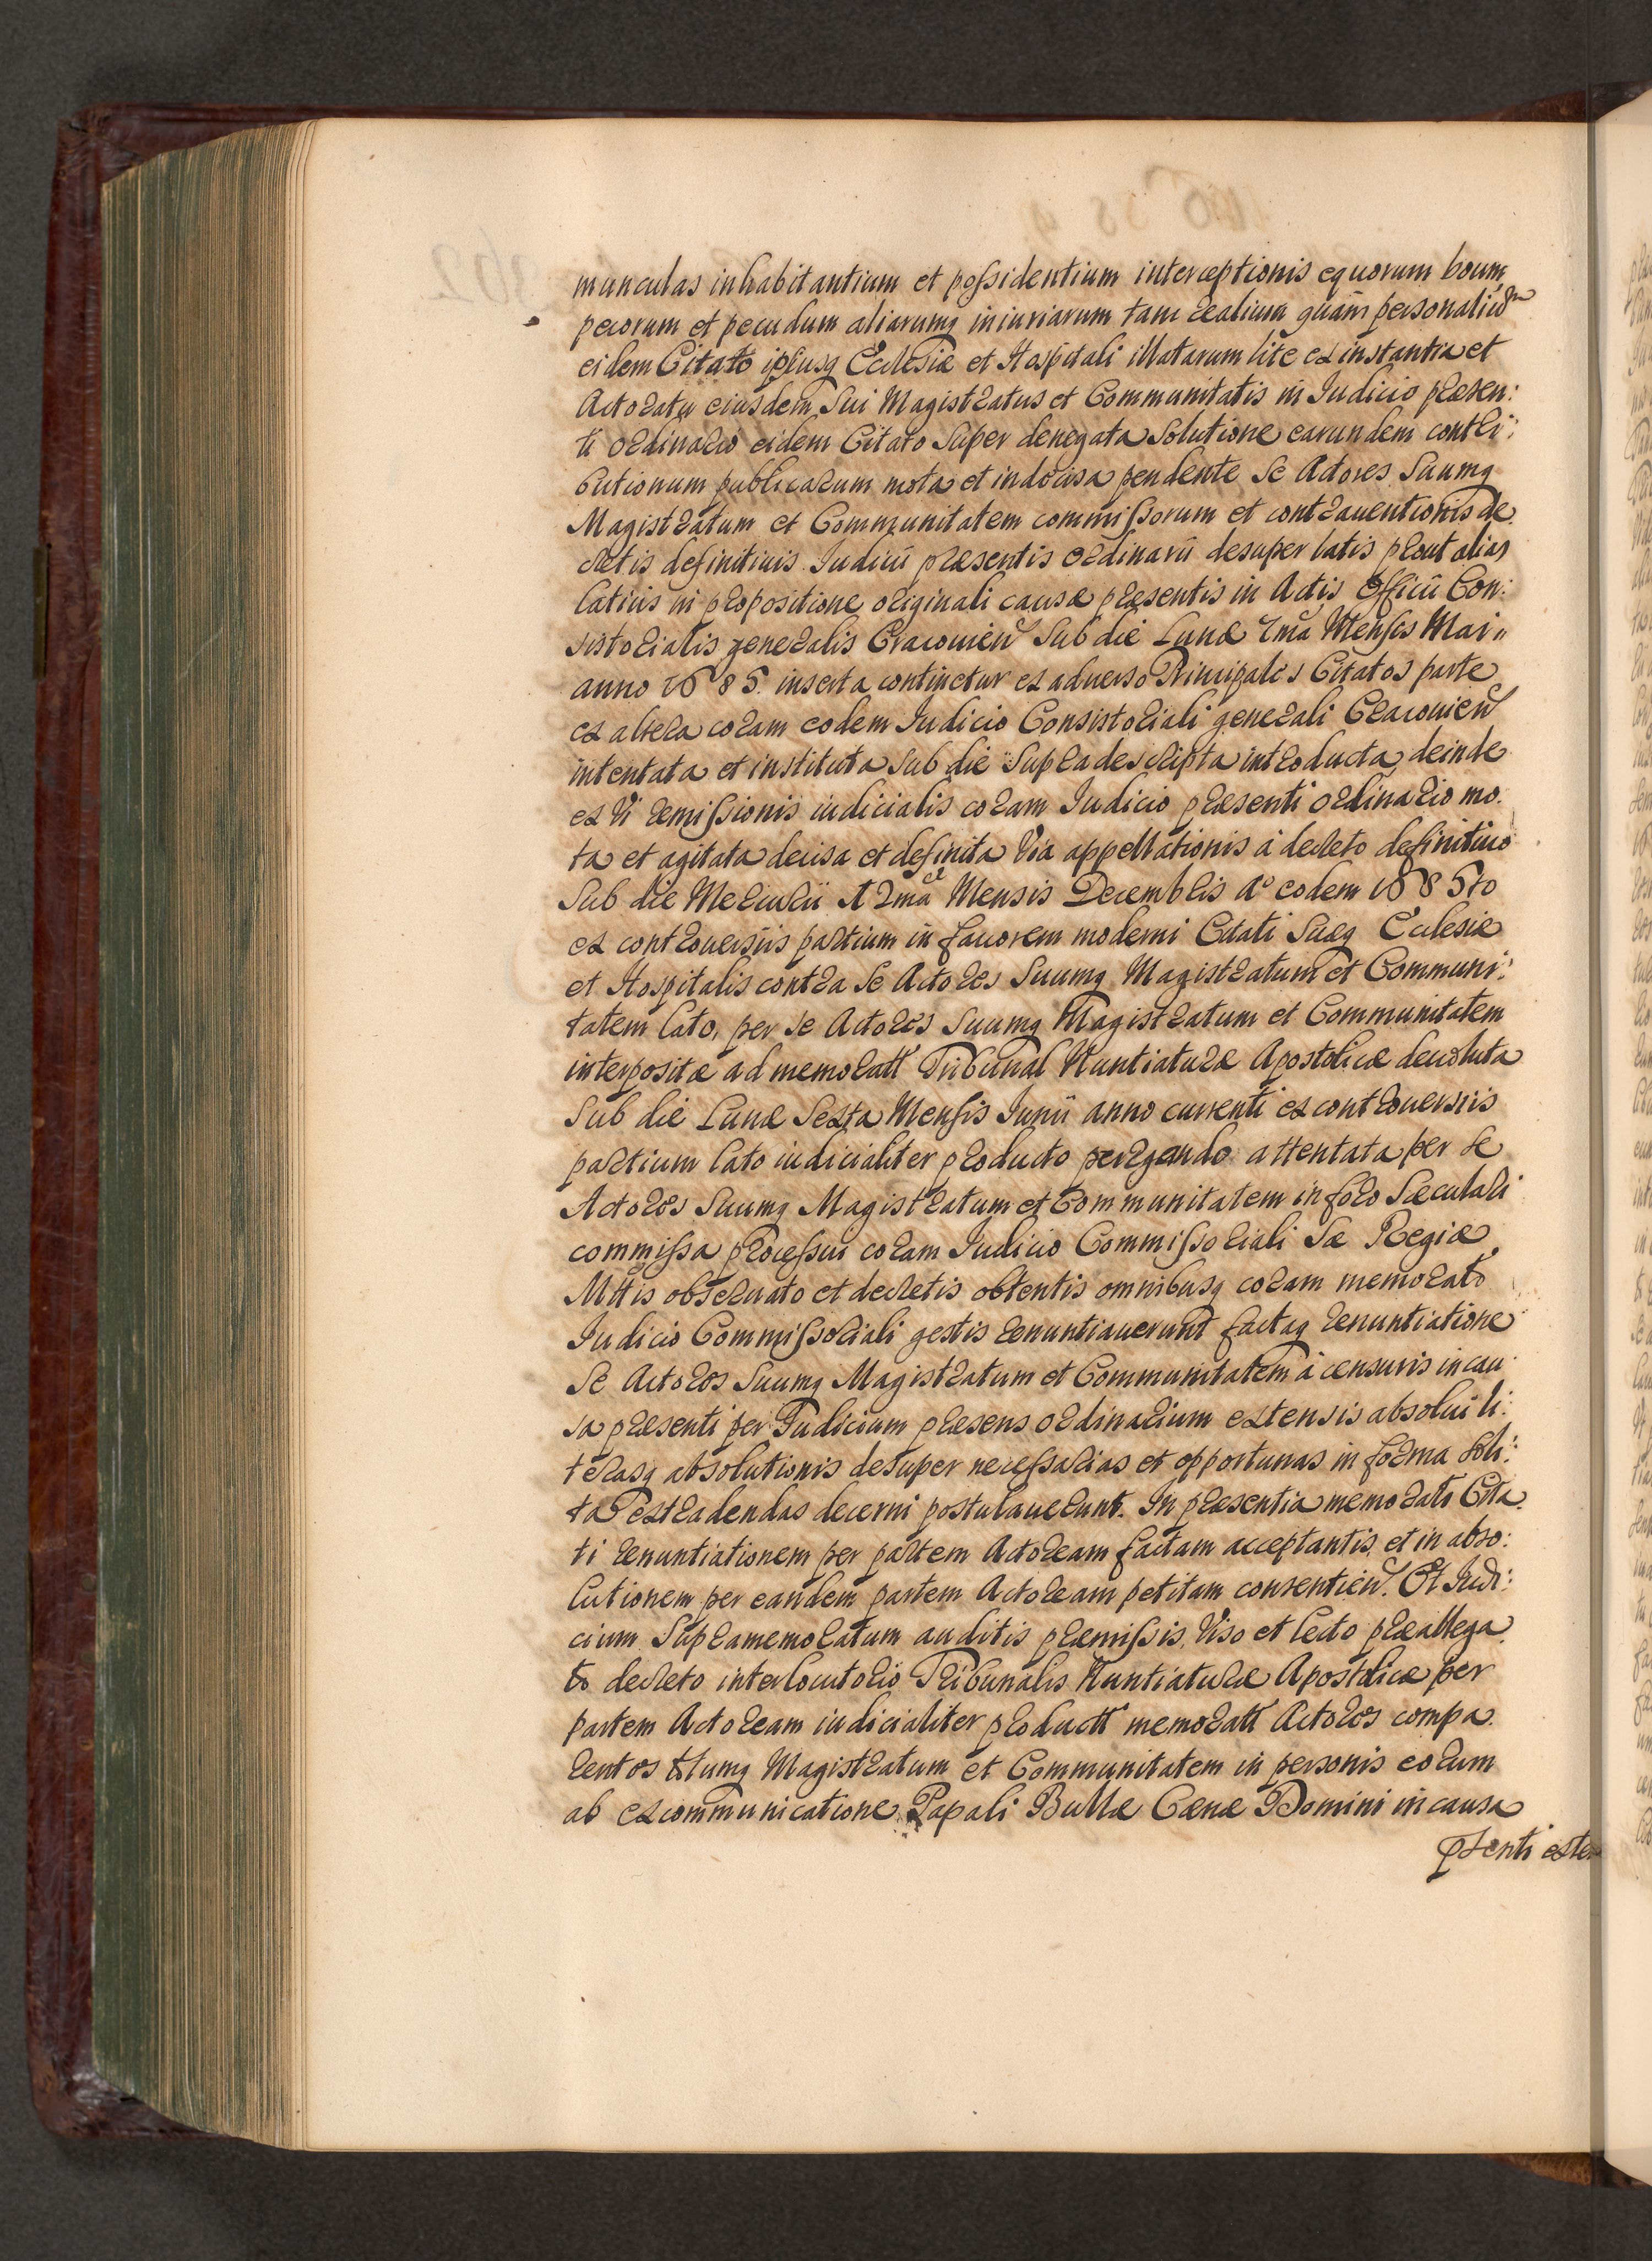 munculas inhabitantium et possidentium interceptionis equorum boum
pecorum et pecudum aliarumq iniuriarum tam realium quam personaliũ
eidem Citato ipsiusq Ecclesiæ et Hospitali illatarum lite ex instantia et
Actoratu eiusdem Sui Magistratus et Communitatis in Iudicio præsen:
ti ordinario eidem Citato Super denegata Solutione earundem contri:
butionum publicarum mota et indecisa pendente Se Actores Suumq
Magistratum et Communitatem commissorum et contrauentionis de
cretis definitiuis Iudicii præsentis ordinarii desuper latis prout alias
latius in propositione originali causæ præsentis in Actis Officii Con:
sistorialis generalis Cracouien Sub die Lunæ 7ma Mensis Maii
anno 1685. inserta continetur ex aduerso Principales Citatos parte
ex altera coram eodem Iudicio Consistoriali generali Cracouien
intentata et instituta Sub die Supradescripta introducta deinde
ex Vi remissionis iudicialis coram Iudicio præsenti ordinario mo
ta et agitata decisa et definita Via appellationis à decreto definitiuo
Sub die Mercurii 12ma Mensis Decembris Aº eodem 1685to
ex controuersiis partium in fauorem moderni Citati Suæq Ecclesiæ
et Hospitalis contra Se Actores Suumq Magistratum et Communi:
tatem lato, per se Actores Suumq Magistratum et Communitatem
interpositæ ad memoratt Tribunal Nuntiaturæ Apostolicæ deuoluta
Sub die Lunæ Sexta Mensis Iunii anno currenti ex controuersiis
partium lato iudicialiter producto peragendo attentata per se
Actores Suumq Magistratum et Communitatem in foro Sæculari
commissa processui coram Iudicio Commissoriali Sæ Regiæ
Mttis obseruato et decretis obtentis omnibusq coram memorato
Iudicio Commissoriali gestis renuntiauerunt factaq renuntiatione
Se Actores Suumq Magistratum et Communitatem à censuris in cau
sa præsenti per Iudicium præsens ordinarium extensis absolui li:
terasq absolutionis desuper necessarias et opportunas in forma soli:
ta extradendas decerni postulauerunt. In præsentia memorati Cita
ti renuntiationem per partem Actoream factam acceptantis et in abso:
lutionem per eandem partem Actoream petitam consentien. Et Iudi:
cium Supramemoratum auditis præmissis, Viso et lecto præallega
to decreto interlocutorio Tribunalis Nuntiaturæ Apostolicæ per
partem Actoream iudicialiter productt memoratt Actores compa
rentes Suumq Magistratum et Communitatem in personis eorum
ab excommunicatione Papali Bullæ Cænæ Domini in causa
pſenti exten